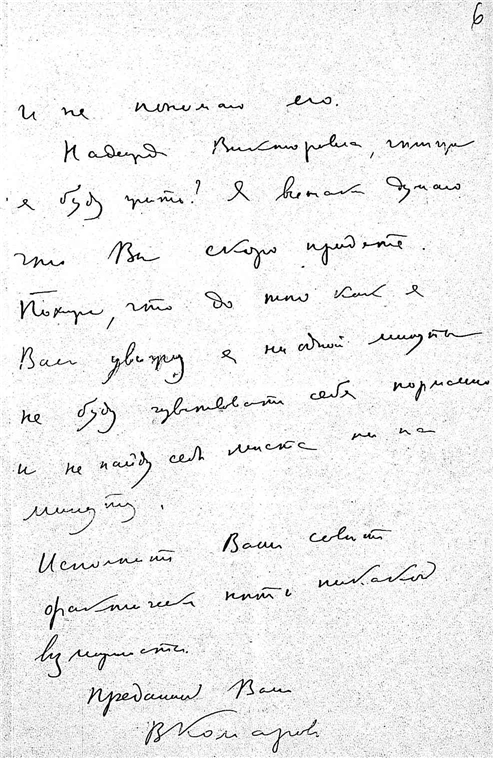 6
и не понимаю его.
Надежда Викторовна,
я буду жить? Я всетаки думаю
что Вы скоро придете.
Похоже, что до того как я
Вас увижу я ни одной минуты
не буду чувствовать себя нормально
и не найду себе места ни на
минуту.
Исполнить Ваш совет
фактически нет никакой
возможности.
Преданный Вам
ВКомаров